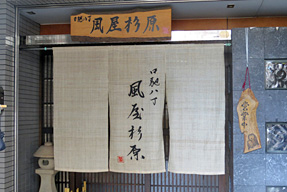 口馳八丁
風屋杉原
口馳八丁
風屋杉原
営業中